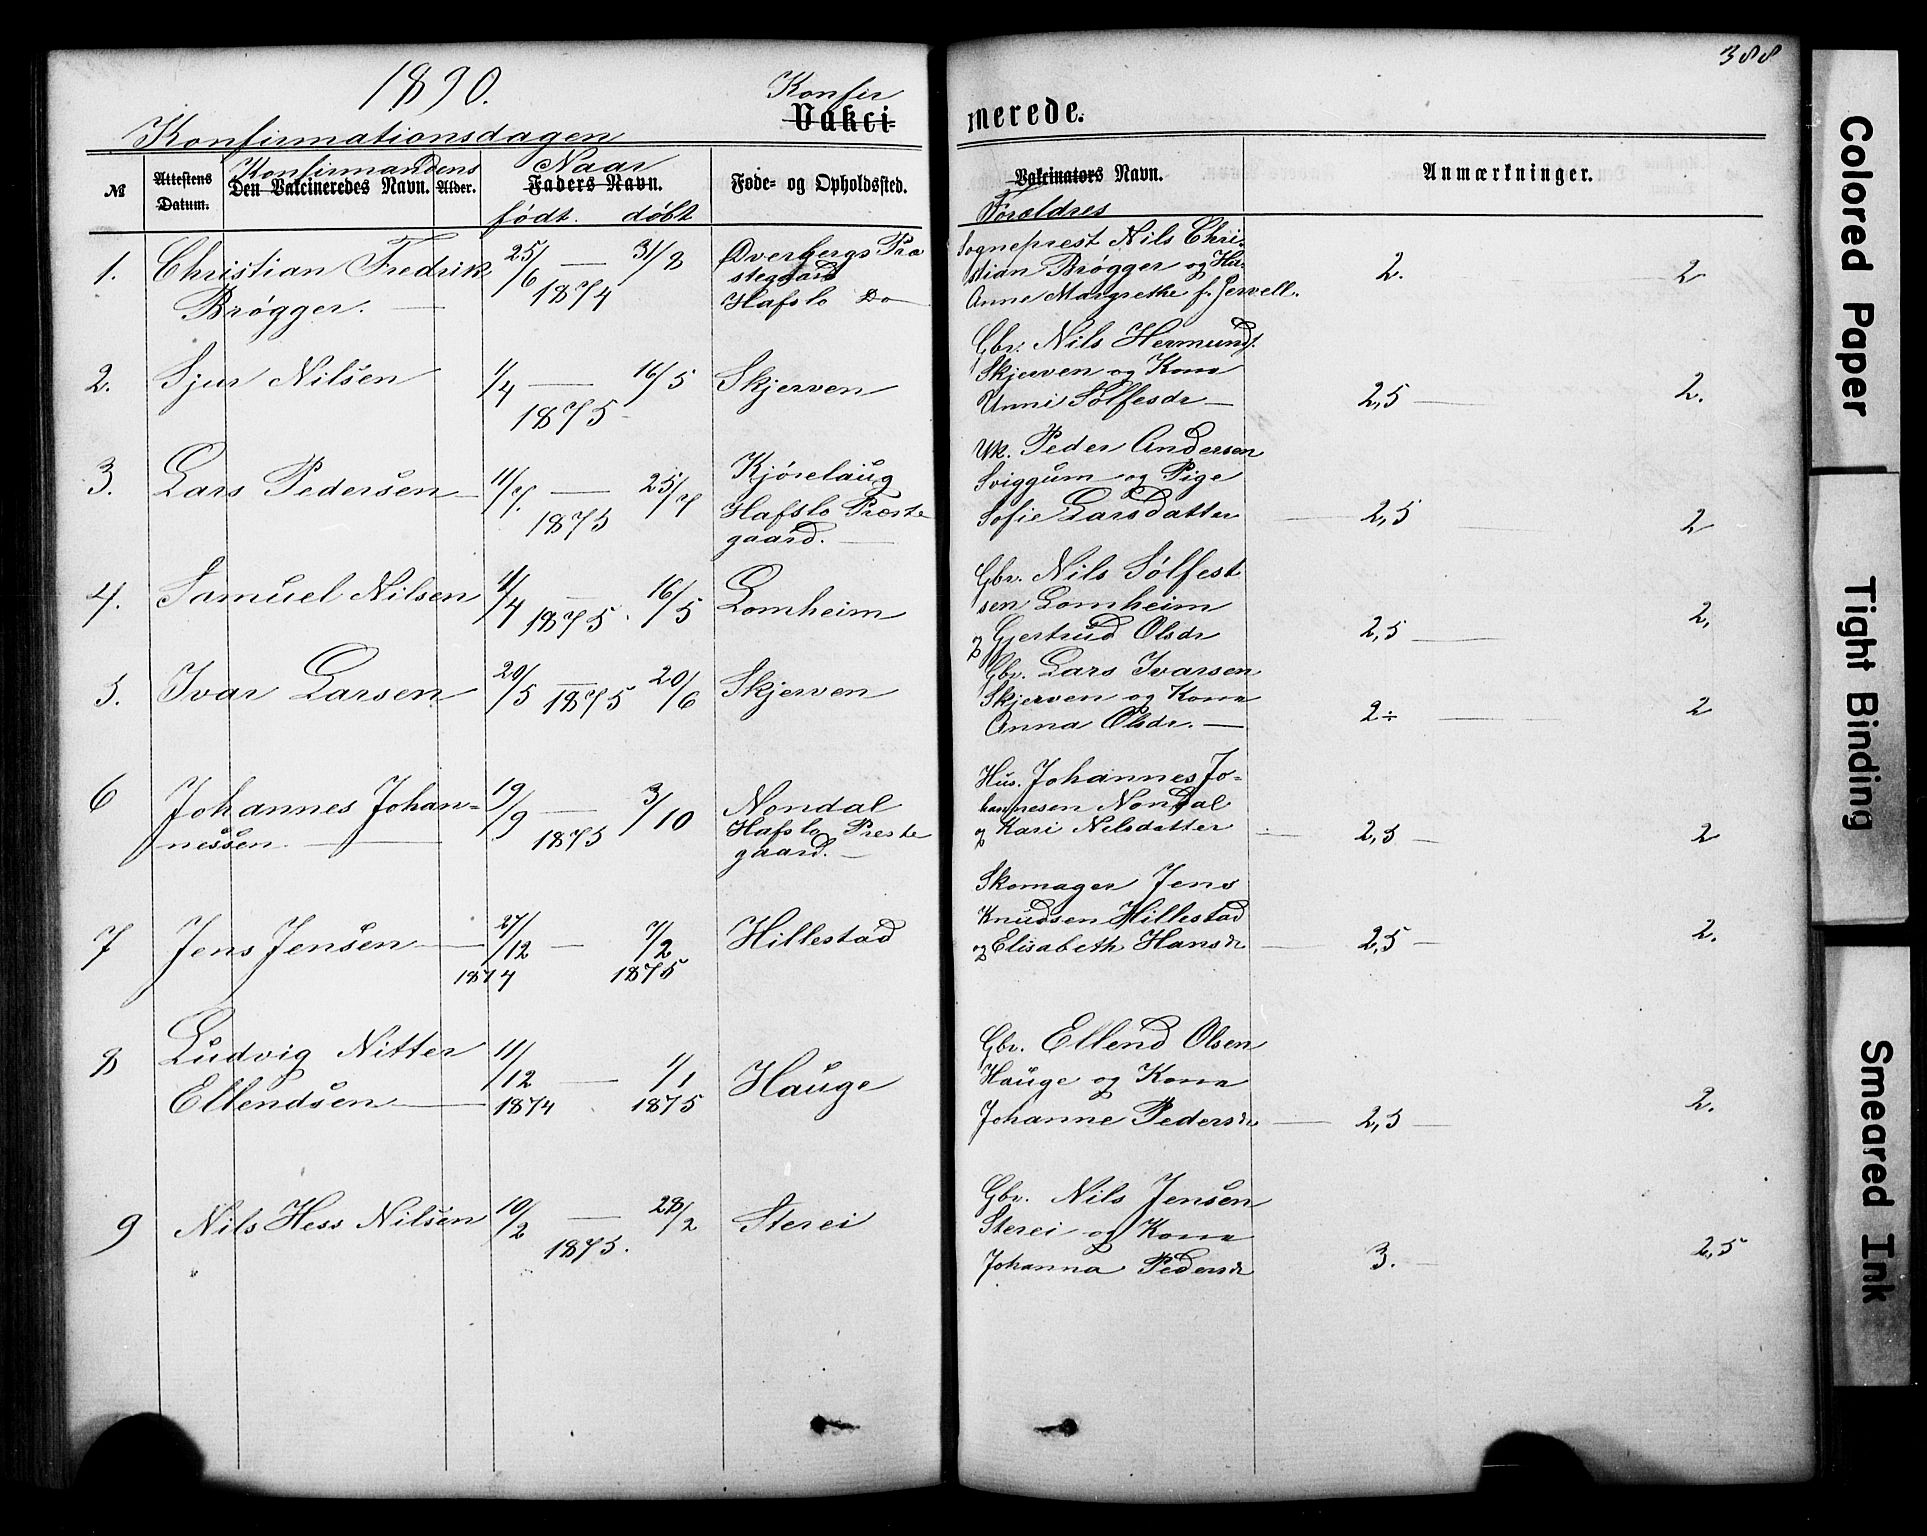 1890.
Konfir
388
Vakci
nerede.
Konfirmationsdagen
№
Attestens Datum.
Konfirmandens
Den Vakcineredes Navn.
Alder.
Naar
Faders Navn.
født. døbt
Føde- og Opholdssted.
Vakcinators Navn.
Forældres
Anmærkninger.
1. Christian Fredrik 25/6 — 31/8 Øverbergs Præ
Brøgger. — 1874 stegaard
Hafslo Do —
Sogneprest Nils Chri-
stian Brøgger og Hu-
Anne Margrethe f. Jervell. 2. 2
2. Sjur Nilsen 4/4 — 16/5 Skjerven
1875 -
Gbr. Nils Hermunds.
Skjerven og Kone
Unni Sølfesdr — 2,5 — 2.
3. Lars Pedersen 11/7. — 25/7 Kjørelaug
1875 Hafslo Præste
gaard. —
Uk. Peder Andersen
Sviggum og Pige
Sofie Larsdatter — 2,5 — 2
4. Samuel Nilsen 4/4 — 16/5 Lomheim
1875.
Gbr. Nils Sølfest
sen Lomheim
og Gjertrud Olsdr 2,5 — 2,
5. Ivar Larsen 20/5 — 20/6 Skjerven
1875
Gbr. Lars Ivarsen
Skjerven og Kone
Anna Olsdr. — 2÷ — 2
6 Johannes Johan- 19/9 — 3/10 Nondal
nessen. — 1875 Hafslo Preste
gaard. —
Hus. Johannes Jo-
hannesen Nondal
og Kari Nilsdatter — 2,5 — 2
7 Jens Jensen — 27/12 — 7/2 Hillestad
1874 1875
Skomager Jens
Knudsen Hillestad
og Elisabeth Hansdr — 2,5 — 2.
8 Ludvig Nitter 11/12 — 1/1 Hauge
Ellendsen — 1874 1875
Gbr. Ellend Olsen
Hauge og Kone
Johanne Pedersdr — 2,5 — 2.
9 Nils Hess Nilsen 10/2 — 28/2 Sterei
1875.
Gbr. Nils Jensen
Sterei og Kone
Johanna Pedersdr 3. — 2,5
Colored Paper
Tight Binding
Smeared Ink